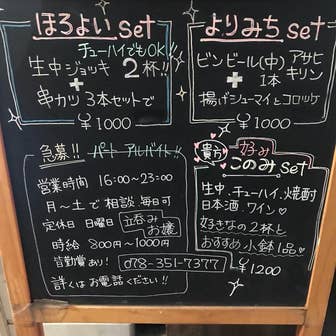 ほろよい set
チューハイでもOK!!
生中ジョッキ 2杯!!
+
串カツ 3本セットで
¥1000
よりみち set
ビンビール(中) アサヒ
キリン
1本
+
揚げシューマイとコロッケ
¥1000
急募!! パート アルバイト!!
営業時間 16:00~23:00
月~土で相談 毎日可
定休日 日曜日
立呑み
お嬢
時給 800円~1000円
皆勤賞あり! 078-351-7377
詳しくはお電話ください!!
貴方
好み
このみ set
生中.チューハイ.焼酎
日本酒.ワイン
好きなの2杯と
おすすめ小鉢1品
¥1200